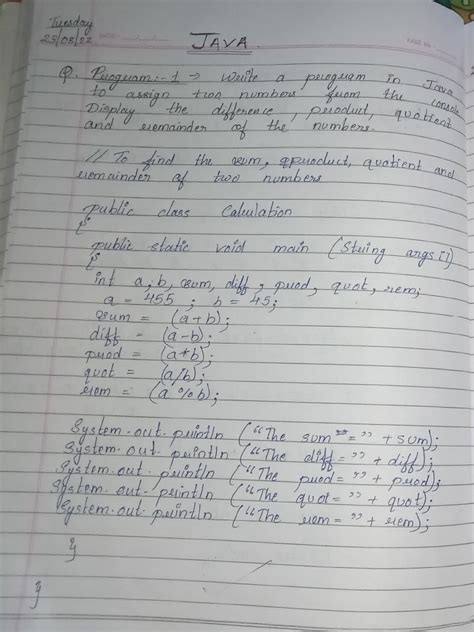 Tuesday
23/08/22
JAVA
Q. Program:-1 → Write a program in Java
to assign two numbers from the console
Display the difference, product, quotient
and remainder of the numbers.
// To find the sum, qproduct, quotient and
remainder of two numbers
public class Calculation
{
public static void main (String args[])
{
int a, b, sum, diff, prod, quot, rem;
a = 455 ; b = 45;
sum = (a+b);
diff = (a-b);
prod = (a*b);
quot = (a/b);
rem = (a%b);
System.out.println ("The sum"=" + sum);
System.out.println ("The diff=" + diff);
System.out.println ("The prod=" + prod);
System.out.println ("The quot=" + quot);
System.out.println ("The rem=" + rem);
}
}